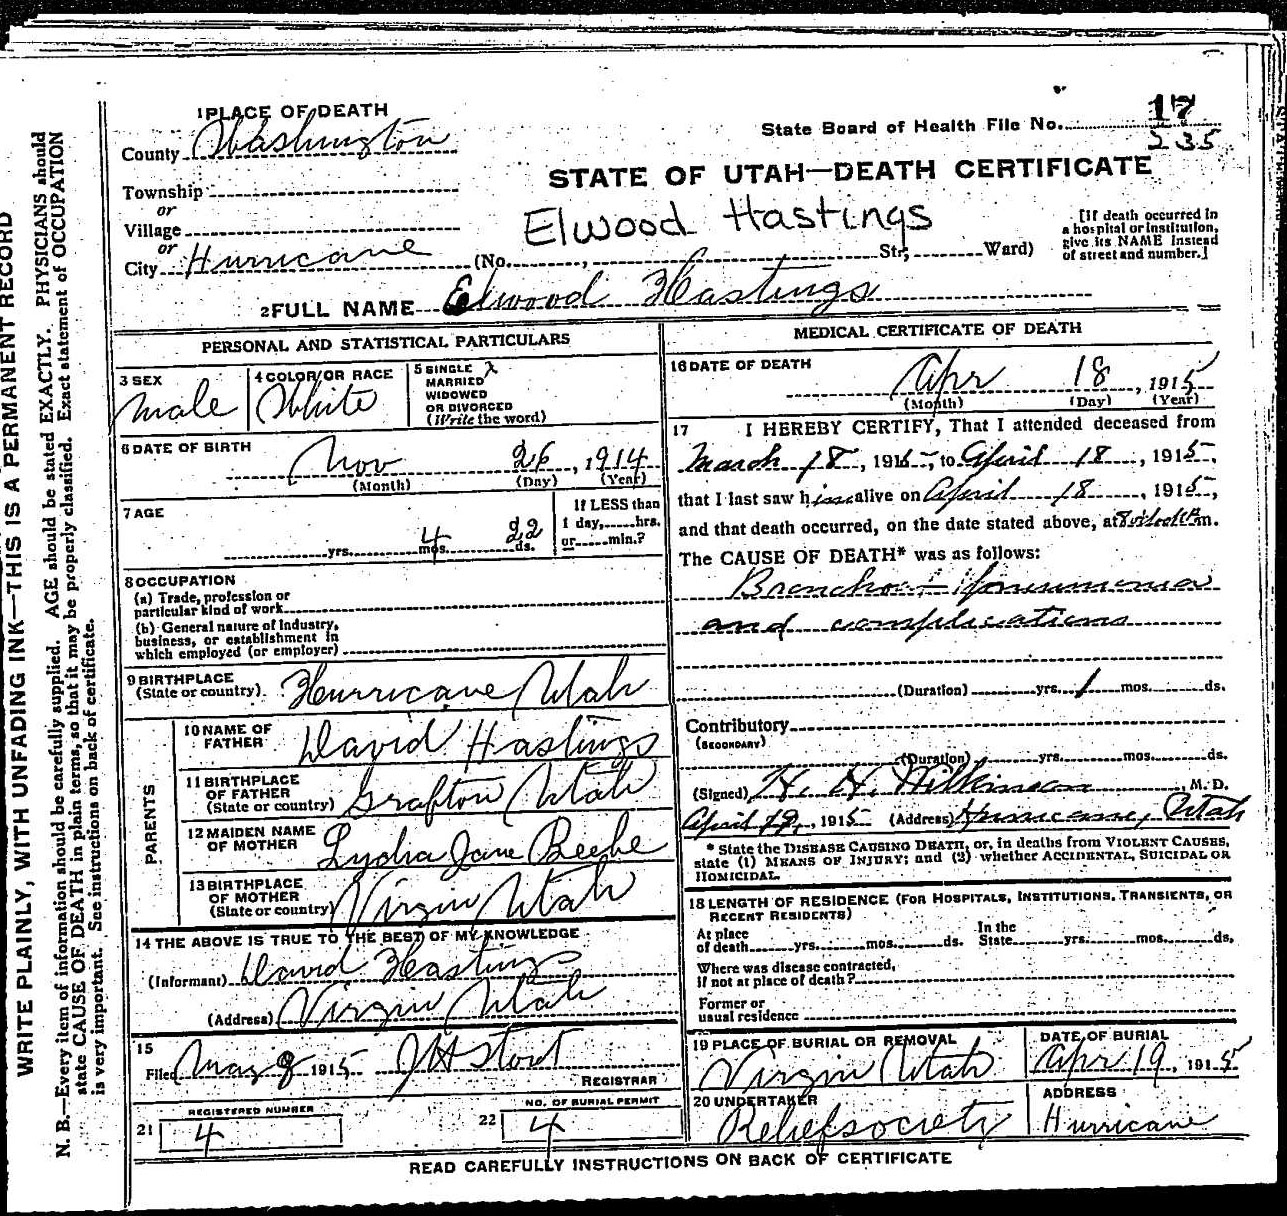 WRITE PLAINLY, WITH UNFADING INK—THIS IS A PERMANENT RECORD
N. B.—Every item of information should be carefully supplied. AGE should be stated EXACTLY. PHYSICIANS should
state CAUSE OF DEATH in plain terms, so that it may be properly classified. Exact statement of OCCUPATION
is very important. See instructions on back of certificate.
1 PLACE OF DEATH
County Washington
Township
or
Village
or
City Hurricane
State Board of Health File No. 17
235
STATE OF UTAH—DEATH CERTIFICATE
Elwood Hastings
(No. , Str., Ward)
[If death occurred in
a hospital or institution,
give its NAME instead
of street and number.]
2 FULL NAME Elwood Hastings
PERSONAL AND STATISTICAL PARTICULARS
3 SEX
Male
4 COLOR OR RACE
White
5 SINGLE
MARRIED
WIDOWED
OR DIVORCED
(Write the word)
6 DATE OF BIRTH
Nov 26, 1914
(Month) (Day) (Year)
7 AGE
yrs. 4 mos. 22 ds.
If LESS than
1 day, hrs.
or min.?
8 OCCUPATION
(a) Trade, profession or
particular kind of work
(b) General nature of Industry,
business, or establishment in
which employed (or employer)
9 BIRTHPLACE
(State or country) Hurricane Utah
PARENTS
10 NAME OF
FATHER David Hastings
11 BIRTHPLACE
OF FATHER
(State or country) Grafton Utah
12 MAIDEN NAME
OF MOTHER Lydia Jane Beebe
13 BIRTHPLACE
OF MOTHER
(State or country) Virgin Utah
14 THE ABOVE IS TRUE TO THE BEST OF MY KNOWLEDGE
(Informant) David Hastings
(Address) Virgin Utah
15
Filed May 8 1915 J H Stout
REGISTRAR
21 REGISTERED NUMBER
4
22 NO. OF BURIAL PERMIT
4
MEDICAL CERTIFICATE OF DEATH
16 DATE OF DEATH
Apr 18, 1915
(Month) (Day) (Year)
17 I HEREBY CERTIFY, That I attended deceased from
March 18, 1915, to April 18, 1915,
that I last saw him alive on April 18, 1915,
and that death occurred, on the date stated above, at 8 o'clock P m.
The CAUSE OF DEATH* was as follows:
Broncho-Pneumonia
and complications
(Duration) yrs. 1 mos. ds.
Contributory
(SECONDARY)
(Duration) yrs. mos. ds.
(Signed) H. H. Wilkinson, M. D.
April 19, 1915 (Address) Hurricane, Utah
* State the DISEASE CAUSING DEATH, or, in deaths from VIOLENT CAUSES,
state (1) MEANS OF INJURY; and (2) whether ACCIDENTAL, SUICIDAL OR
HOMICIDAL.
18 LENGTH OF RESIDENCE (FOR HOSPITALS, INSTITUTIONS, TRANSIENTS, OR
RECENT RESIDENTS)
At place
of death yrs. mos. ds.
In the
State yrs. mos. ds.
Where was disease contracted,
if not at place of death?
Former or
usual residence
19 PLACE OF BURIAL OR REMOVAL
Virgin Utah
DATE OF BURIAL
Apr 19, 1915
20 UNDERTAKER
Relief society
ADDRESS
Hurricane
READ CAREFULLY INSTRUCTIONS ON BACK OF CERTIFICATE